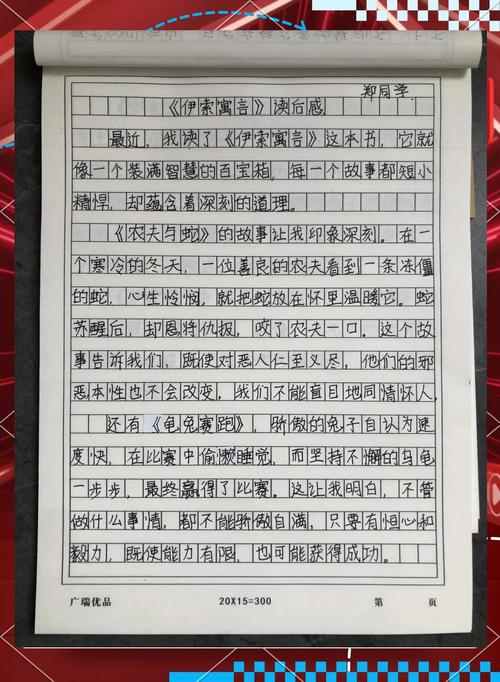 郑同学
《伊索寓言》读后感
最近，我读了《伊索寓言》这本书，它就
像一个装满智慧的百宝箱，每一个故事都短小
精悍，却蕴含着深刻的道理。
《农夫与蛇》的故事让我印象深刻。在一
个寒冷的冬天，一位善良的农夫看到一条冻僵
的蛇，心生怜悯，就把蛇放在怀里温暖它。蛇
苏醒后，却恩将仇报，咬了农夫一口。这个故
事告诉我们，既使对恶人仁至义尽，他们的邪
恶本性也不会改变，我们不能盲目地同情坏人
还有《龟兔赛跑》，骄傲的兔子自认为速
度快，在比赛中偷懒睡觉，而坚持不懈的乌龟
一步步，最终赢得了比赛。这让我明白，不管
做什么事情，都不能骄傲自满，只要有恒心和
毅力，既使能力有限，也可能获得成功。
广瑞优品 20X15=300 第 页